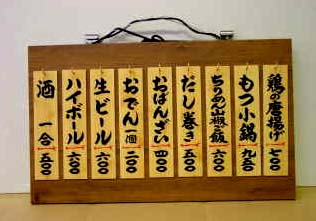 鶏の唐揚げ 七〇〇
もつ小鍋 九〇〇
ちりめん山椒ご飯 六〇〇
だし巻き 五〇〇
おばんざい 四〇〇
おでん 一個 二〇〇
生ビール 六〇〇
ハイボール 六〇〇
酒 一合 五〇〇